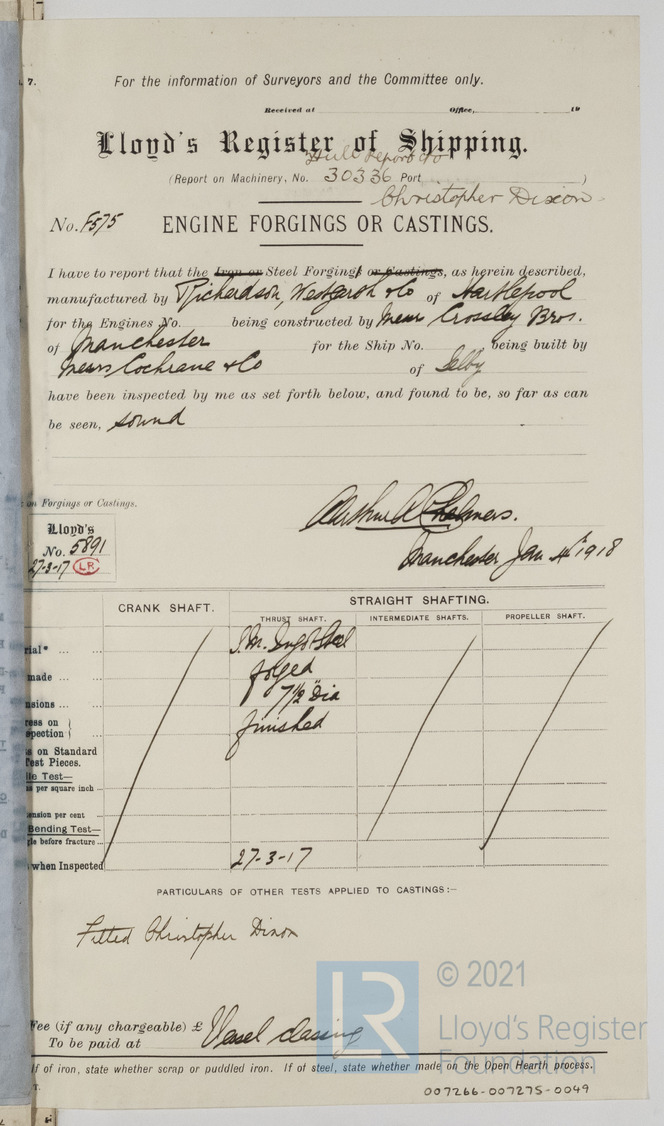 7.
For the information of Surveyors and the Committee only.
Received at Office, 19
Lloyd's Register of Shipping.
Hull report No
(Report on Machinery, No. 30336 Port )
Christopher Dixon
No. F575 ENGINE FORGINGS OR CASTINGS.
I have to report that the Iron or Steel Forgings or Castings, as herein described,
manufactured by Richardson, Westgarth & Co of Hartlepool
for the Engines No. being constructed by Messrs Crossley Bros.
of Manchester for the Ship No. , being built by
Messrs Cochrane & Co of Selby
have been inspected by me as set forth below, and found to be, so far as can
be seen, sound
on Forgings or Castings.
Arthur R Chalmers.
Lloyd's
No. 5891
27-3-17 LR
Manchester Jan 4th 1918
CRANK SHAFT. STRAIGHT SHAFTING.
THRUST SHAFT. INTERMEDIATE SHAFTS. PROPELLER SHAFT.
rial* ... ... S. M. Ingot Steel
made ... forged
nsions ... ... 7½" Dia
ress on
spection finished
s on Standard
Test Pieces.
ile Test—
s per square inch
ension per cent
Bending Test—
gle before fracture
when Inspected 27-3-17
PARTICULARS OF OTHER TESTS APPLIED TO CASTINGS:—
Fitted Christopher Dixon
© 2021
Lloyd's Register
Foundation
Fee (if any chargeable) £ Vessel classing
To be paid at
If of iron, state whether scrap or puddled iron. If of steel, state whether made on the Open Hearth process.
T.
007266-007275-0049